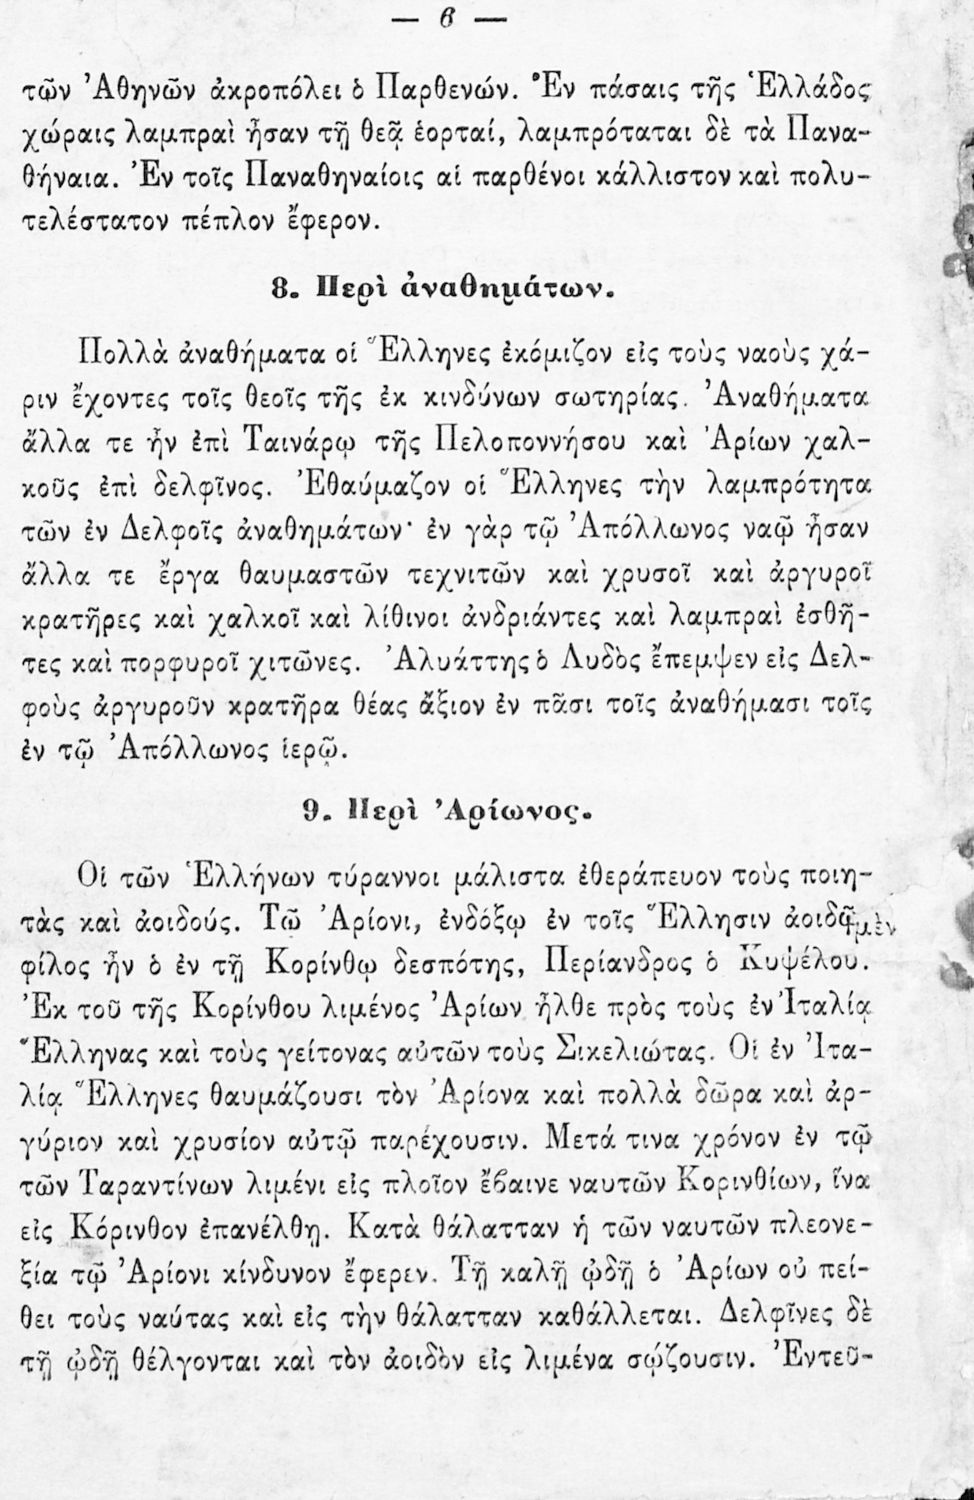 — 6 —
τῶν Ἀθηνῶν ἀκροπόλει ὁ Παρθενών. Ἐν πάσαις τῆς Ἑλλάδος
χώραις λαμπραὶ ἦσαν τῇ θεᾷ ἑορταί, λαμπρόταται δὲ τὰ Πανα-
θήναια. Ἐν τοῖς Παναθηναίοις αἱ παρθένοι κάλλιστον καὶ πολυ-
τελέστατον πέπλον ἔφερον.
8. Περὶ ἀναθημάτων.
Πολλὰ ἀναθήματα οἱ Ἕλληνες ἐκόμιζον εἰς τοὺς ναοὺς χά-
ριν ἔχοντες τοῖς θεοῖς τῆς ἐκ κινδύνων σωτηρίας. Ἀναθήματα
ἄλλα τε ἦν ἐπὶ Ταινάρῳ τῆς Πελοποννήσου καὶ Ἀρίων χαλ-
κοῦς ἐπὶ δελφῖνος. Ἐθαύμαζον οἱ Ἕλληνες τὴν λαμπρότητα
τῶν ἐν Δελφοῖς ἀναθημάτων· ἐν γὰρ τῷ Ἀπόλλωνος ναῷ ἦσαν
ἄλλα τε ἔργα θαυμαστῶν τεχνιτῶν καὶ χρυσοῖ καὶ ἀργυροῖ
κρατῆρες καὶ χαλκοῖ καὶ λίθινοι ἀνδριάντες καὶ λαμπραὶ ἐσθῆ-
τες καὶ πορφυροῖ χιτῶνες. Ἀλυάττης ὁ Λυδὸς ἔπεμψεν εἰς Δελ-
φοὺς ἀργυροῦν κρατῆρα θέας ἄξιον ἐν πᾶσι τοῖς ἀναθήμασι τοῖς
ἐν τῷ Ἀπόλλωνος ἱερῷ.
9. Περὶ Ἀρίωνος.
Οἱ τῶν Ἑλλήνων τύραννοι μάλιστα ἐθεράπευον τοὺς ποιη-
τὰς καὶ ἀοιδούς. Τῷ Ἀρίονι, ἐνδόξῳ ἐν τοῖς Ἕλλησιν ἀοιδῷ μὲν
φίλος ἦν ὁ ἐν τῇ Κορίνθῳ δεσπότης, Περίανδρος ὁ Κυψέλου.
Ἐκ τοῦ τῆς Κορίνθου λιμένος Ἀρίων ἦλθε πρὸς τοὺς ἐν Ἰταλίᾳ
Ἕλληνας καὶ τοὺς γείτονας αὐτῶν τοὺς Σικελιώτας. Οἱ ἐν Ἰτα-
λίᾳ Ἕλληνες θαυμάζουσι τὸν Ἀρίονα καὶ πολλὰ δῶρα καὶ ἀρ-
γύριον καὶ χρυσίον αὐτῷ παρέχουσιν. Μετά τινα χρόνον ἐν τῷ
τῶν Ταραντίνων λιμένι εἰς πλοῖον ἔβαινε ναυτῶν Κορινθίων, ἵνα
εἰς Κόρινθον ἐπανέλθῃ. Κατὰ θάλατταν ἡ τῶν ναυτῶν πλεονε-
ξία τῷ Ἀρίονι κίνδυνον ἔφερεν. Τῇ καλῇ ᾠδῇ ὁ Ἀρίων οὐ πεί-
θει τοὺς ναύτας καὶ εἰς τὴν θάλατταν καθάλλεται. Δελφῖνες δὲ
τῇ ᾠδῇ θέλγονται καὶ τὸν ἀοιδὸν εἰς λιμένα σῴζουσιν. Ἐντεῦ-